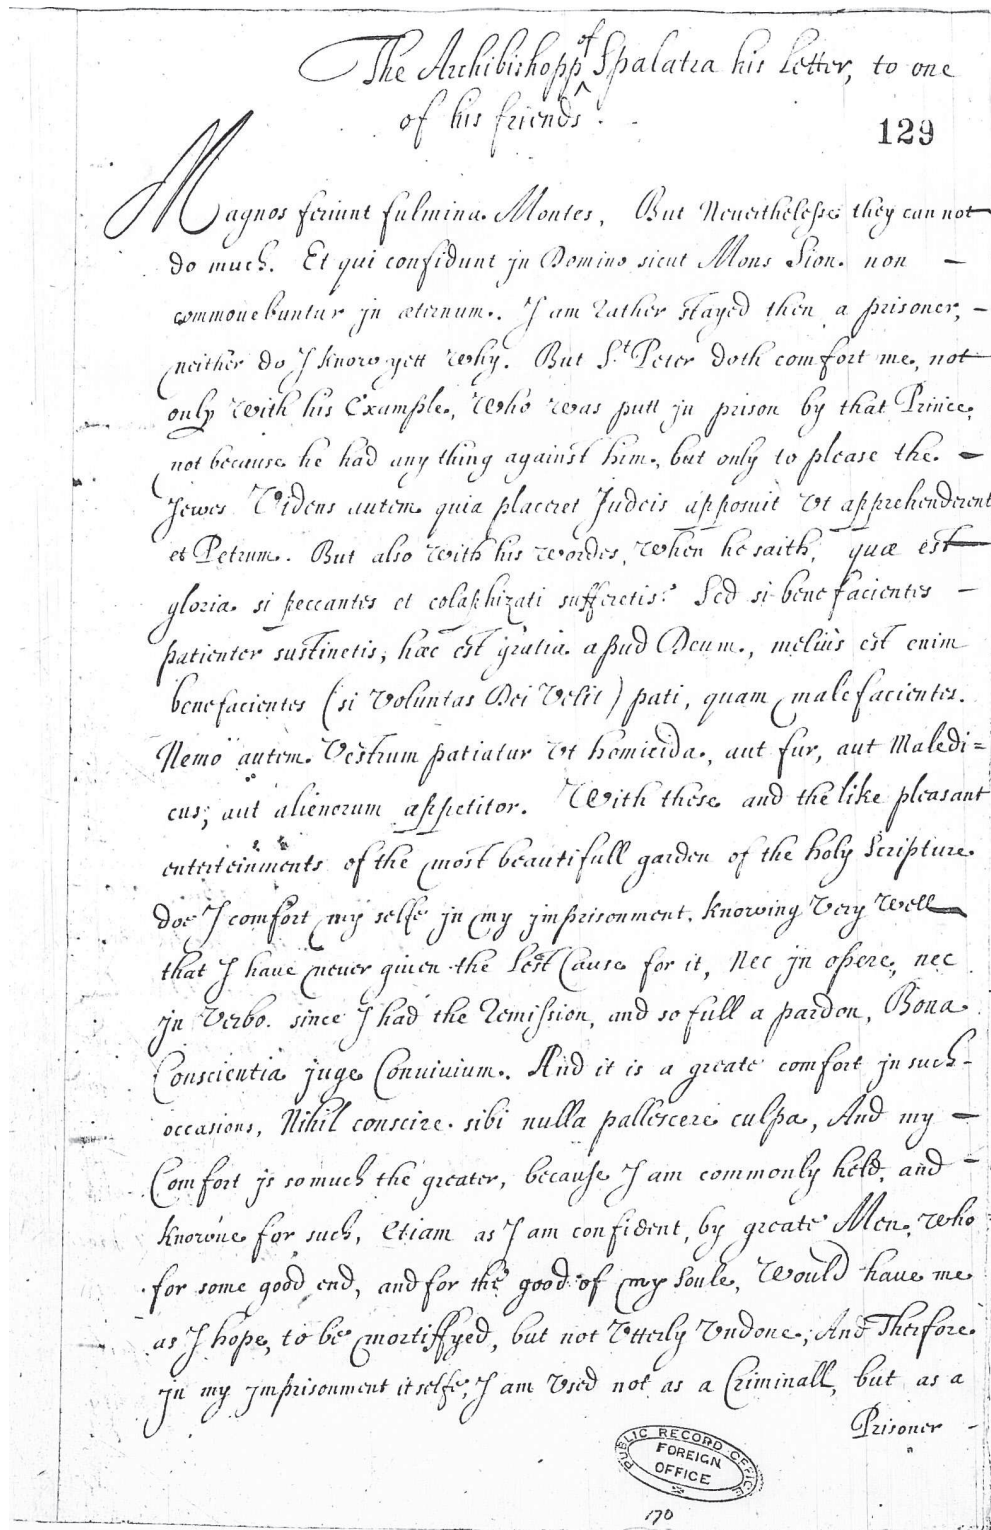 The Archibishopp of Spalatra his Letter, to one
of his friends.
129
Magnos feriunt fulmina Montes, But Neuerthelesse they can not
do much. Et qui confidunt jn Domino sicut Mons Sion non
commouebuntur jn æternum. I am rather stayed then a prisoner,
neither do I know yett why. But St Peter doth comfort me, not
only with his Example, Who was putt jn prison by that Prince,
not because he had any thing against him, but only to please the
Jewes Videns autem quia placeret Judeis apposuit Vt apprehenderent
et Petrum. But also with his wordes, when he saith, quæ est
gloria si peccantes et colaphizati sufferetis? Sed si benefacientes
patienter sustinetis, hæc est gratia apud Deum, melius est enim
benefacientes (si Voluntas Dei Velit) pati, quam malefacientes.
Nemo autem Vestrum patiatur Vt homicida, aut fur, aut Maledi=
cus, aut alienorum appetitor. With these and the like pleasant
enterteinments of the most beautifull garden of the holy Scripture
doe I comfort my selfe jn my jmprisonment, knowing Very Well
that I haue neuer giuen the lest Cause for it, Nec jn opere, nec
jn Verbo. since I had the remission, and so full a pardon, Bona
Conscientia juge Conuiuium. And it is a greate comfort jn such
occasions, Nihil conscire sibi nulla pallescere culpa, And my
Comfort js so much the greater, because I am commonly held, and
knowne for such, Etiam as I am confident, by greate Men, who
for some good end, and for the good of my Soule, Would haue me
as I hope, to be mortiffyed, but not Vtterly Vndone, And Therfore
jn my jmprisonment it selfe, I am Vsed not as a Criminall, but as a
Prisoner
PUBLIC RECORD OFFICE
FOREIGN
OFFICE
170